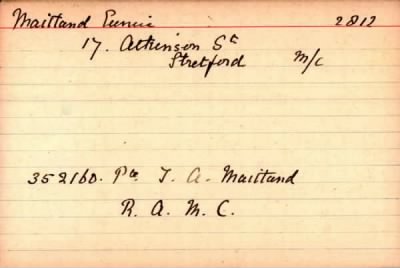 Maitland Eunice 2812
17. Atkinson St
Stretford M/C
352160. Pte J. A. Maitland
R. A. M. C.